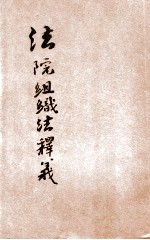 法院組織法釋義